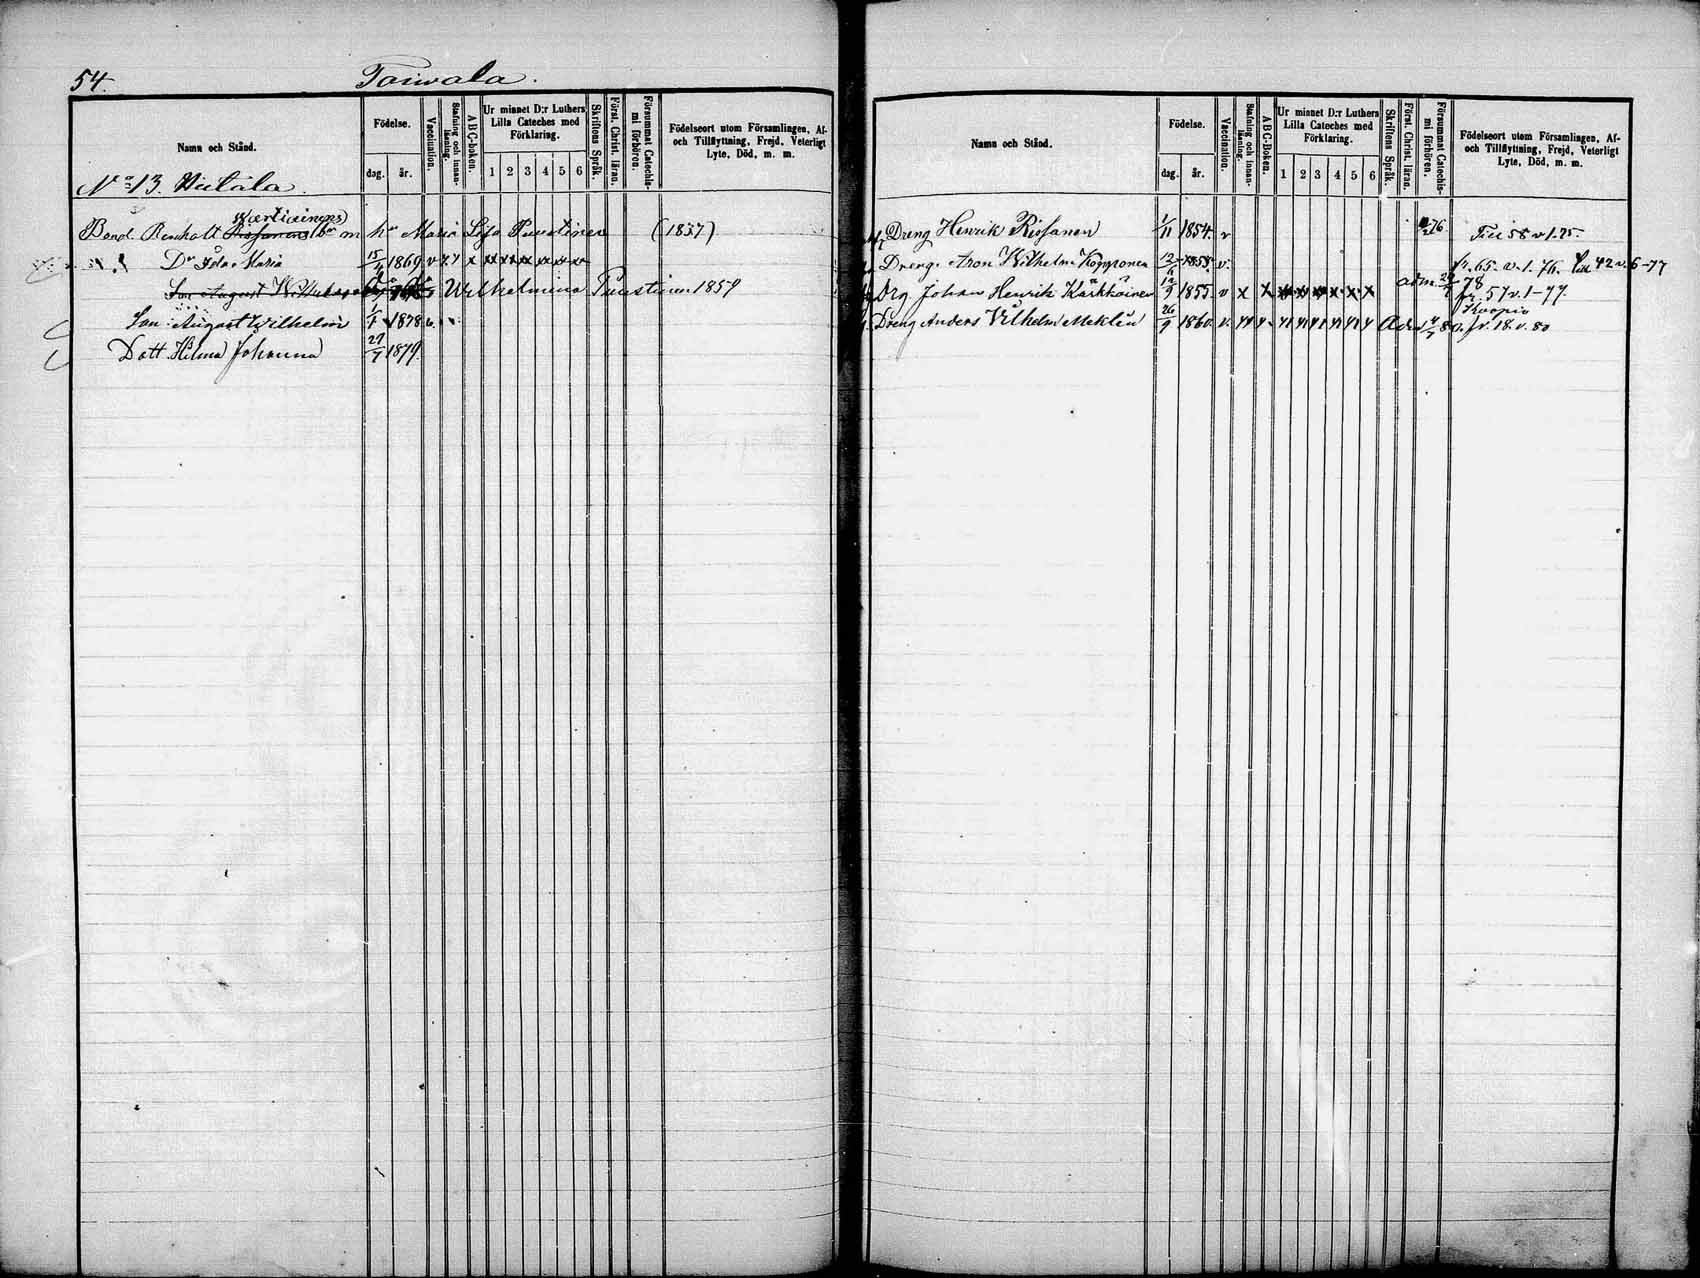 54. Taiwala.
Namn och Stånd.
Födelse.
dag. år.
Vaccination.
Stafning och innanläsning.
ABC-boken.
Ur minnet D:r Luthers Lilla Cateches med Förklaring.
1 2 3 4 5 6
Skriftens Språk.
Först. Christ. läran.
Försummat Catechismi förhören.
Födelseort utom Församlingen, Af- och Tillflyttning, Frejd, Veterligt Lyte, Död, m. m.
No 13.
Wartiainens
Bond. Renholt Rissanens m hu Maria Lisa Puustinen (1837)
Dr Ida Maria 15/ 1869 v x x x x x x x x
Son August Wilhelmina Puustinen 1859
Son August Wilhelm 1/1 1878
Dott. Hilma Johanna 27/7 1879.
Namn och Stånd.
Födelse.
dag. år.
Vaccination.
Stafning och innanläsning.
ABC-Boken.
Ur minnet D:r Luthers Lilla Cateches med Förklaring.
1 2 3 4 5 6
Skriftens Språk.
Först. Christ. läran.
Försummat Catechismi förhören.
Födelseort utom Församlingen, Af- och Tillflyttning, Frejd, Veterligt Lyte, Död, m. m.
Dreng Henrik Rissanen 1/11 1854. v 76 Till 58 v 1.75
Dreng Aron Wilhelm Kopponen 12/6 1858. v. fr. 65. v. 1. 76. till 42 v. 6-77
Drg Johan Henrik Kärkkäinen 12/9 1855. v x x x x x x x x adm. 78 fr. 57 v. 1-77.
Kuopio
Dreng Anders Vilhelm Meklin 26/9 1860. v. fr. 18. v. 80